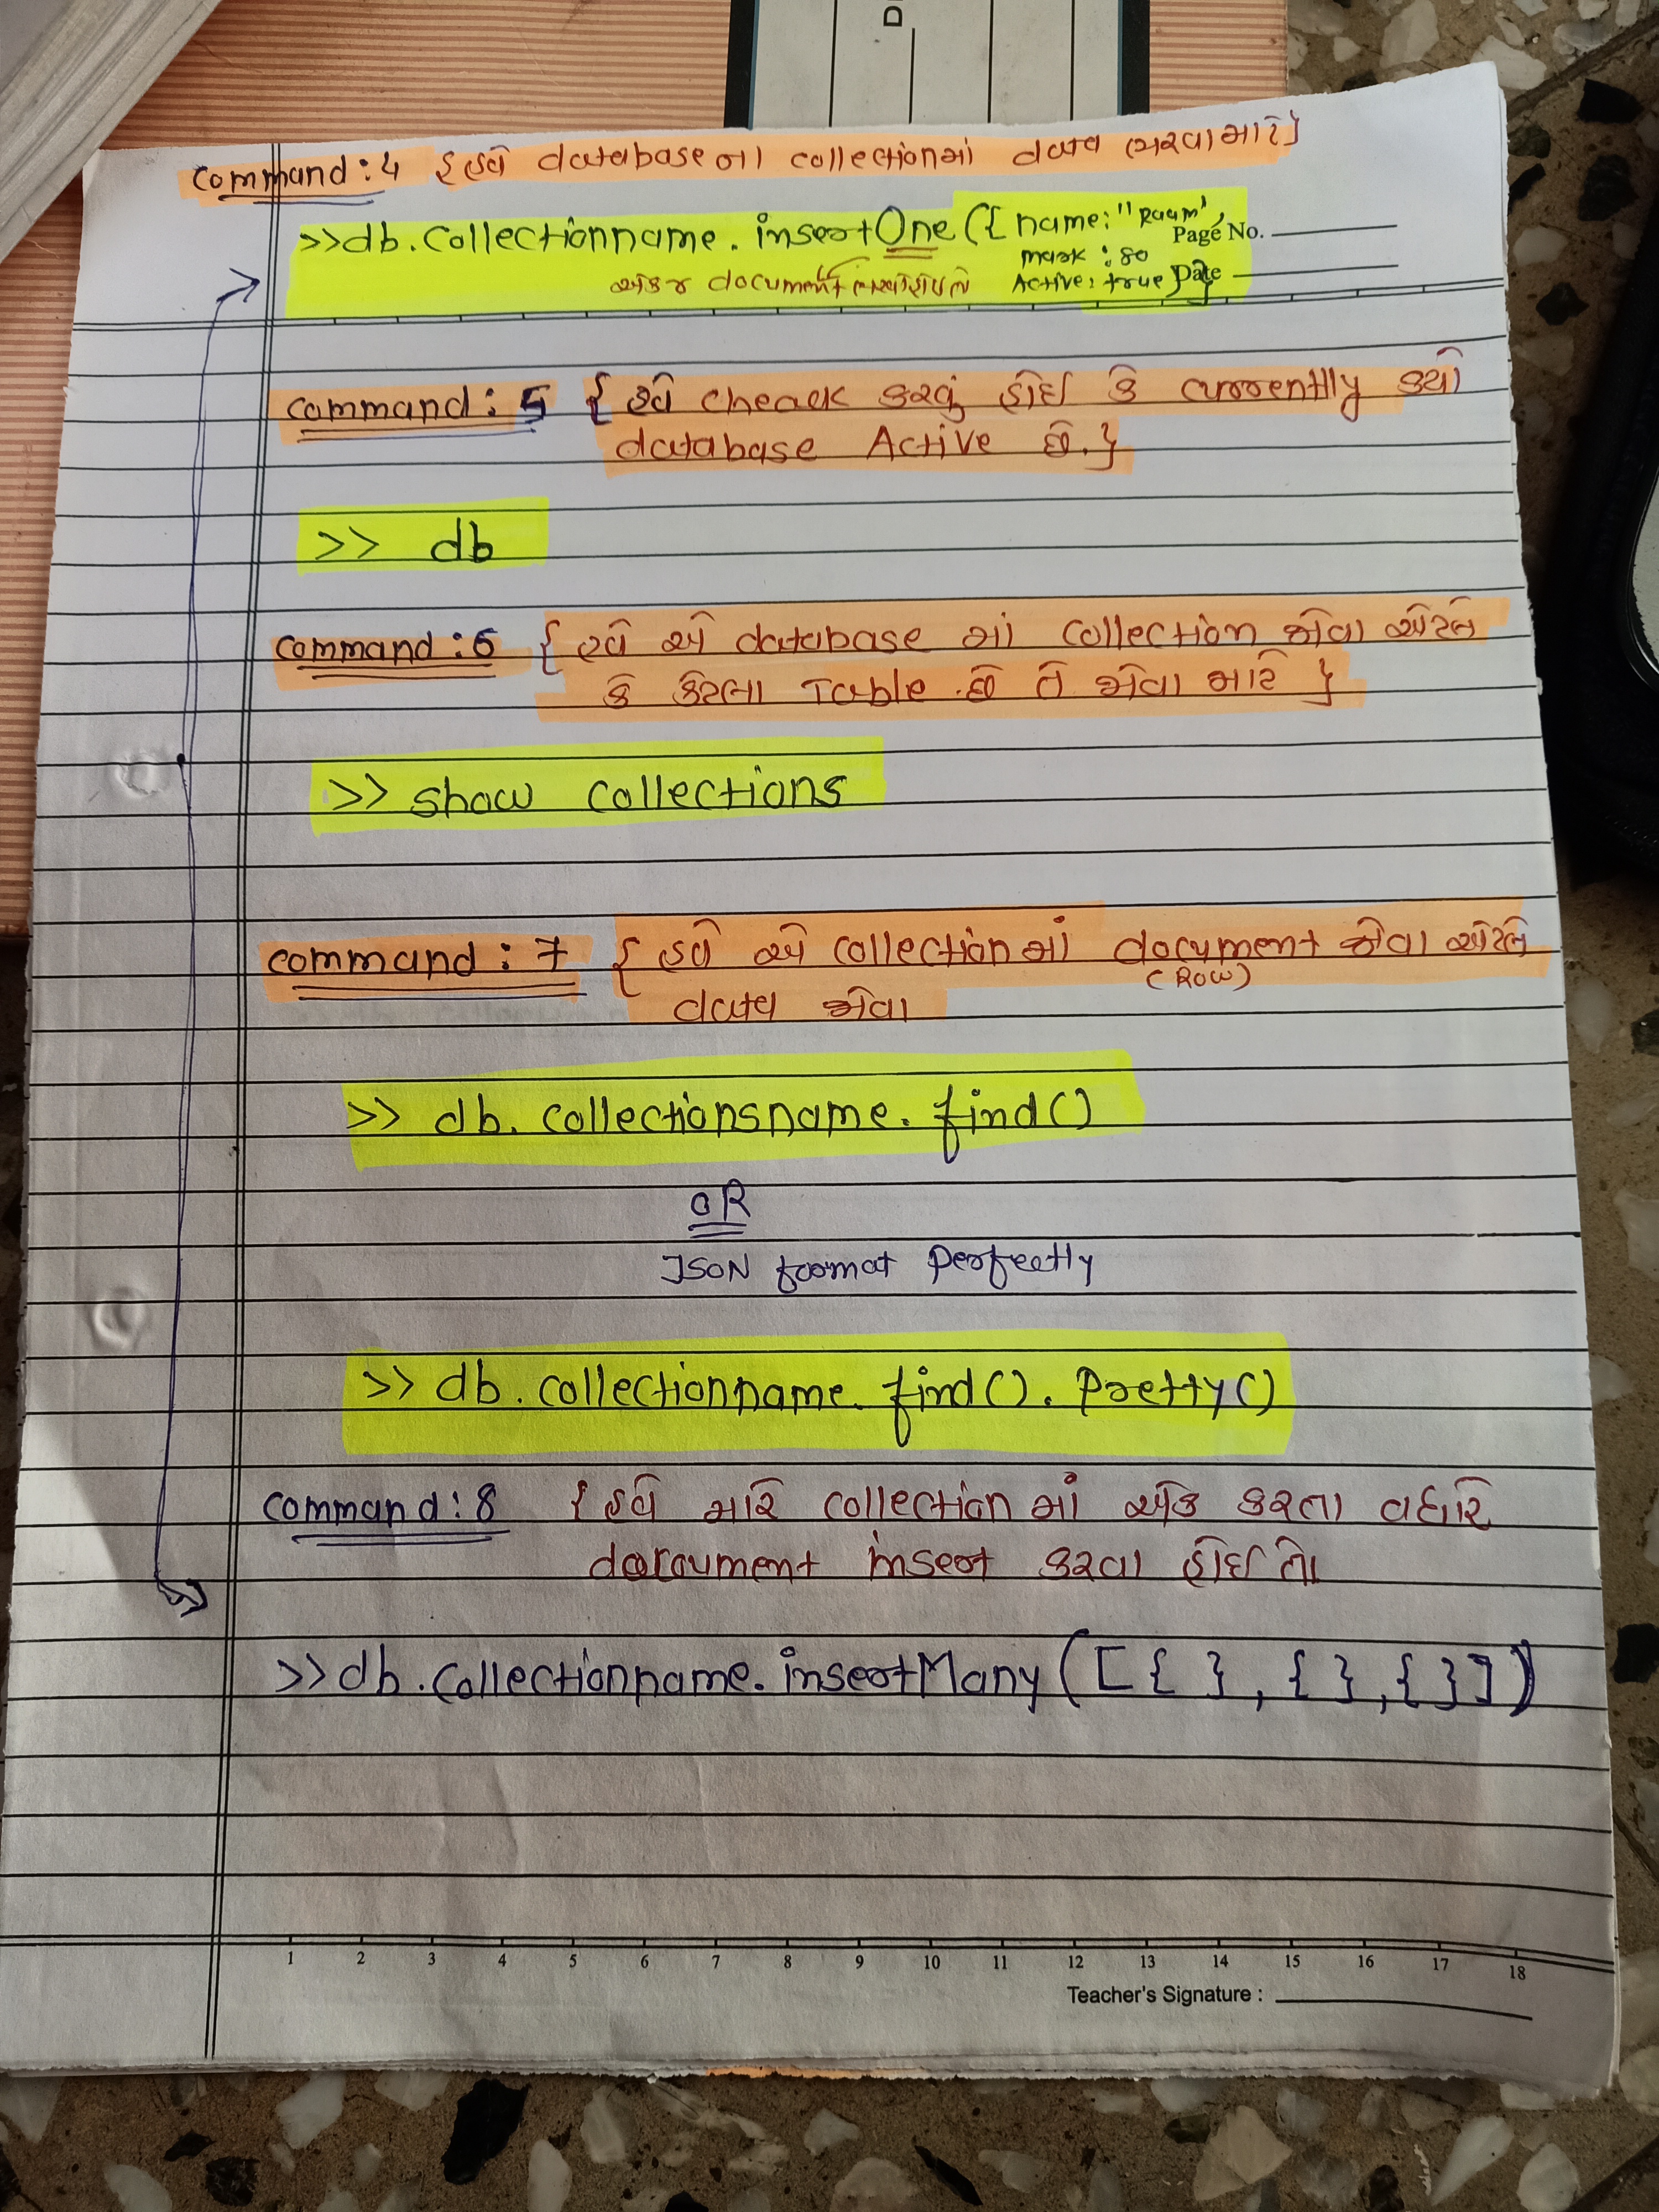 command : 4 { હવે database ના collectionમાં data ભરવા માટે }
>>db.collectionname.insertOne ({ name: "Raam",
Page No.
mark : 80
એકજ document Active: true }
Date
command : 5 { હવે cheack કરવું હોઈ કે currently કયો
database Active છે. }
>> db
command : 6 { હવે એ database માં collection જોવા એટલે
કે કેટલા Table છે તે જોવા માટે }
>> show collections
command : 7 { હવે એ collection માં document જોવા એટલે
(Row)
data જોવા
>> db. collectionsname. find()
OR
JSON format perfectly
>> db.collectionname. find(). Pretty()
command : 8 { હવે મારે collection માં એક કરતા વધારે
document insert કરવા હોઈ તો
>>db.collectionname.insertMany ( [ { } , { } , { } ] )
1 2 3 4 5 6 7 8 9 10 11 12 13 14 15 16 17 18
Teacher's Signature :